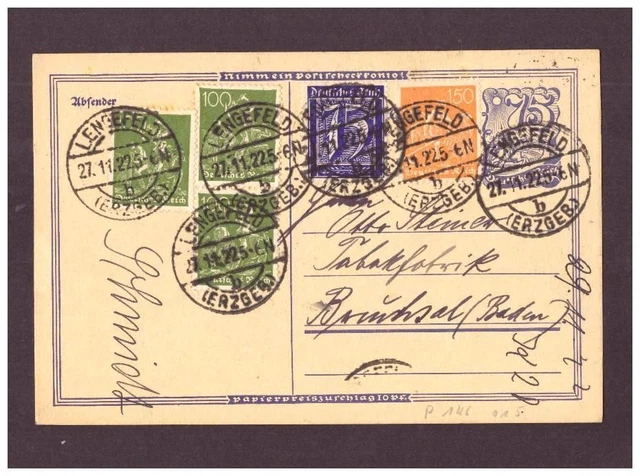 Nimm ein Postscheckkonto!
Absender
100
Deutsches Reich
150
75
LENGEFELD
27.11.22.5-6N
b
(ERZGEB.)
LENGEFELD
27.11.22.5-6N
b
(ERZGEB.)
15
LENGEFELD
27.11.22.5-6N
b
(ERZGEB.)
LENGEFELD
27.11.22.5-6N
b
(ERZGEB.)
LENGEFELD
27.11.22.5-6N
b
(ERZGEB.)
Otto Steiner
Tabakfabrik
Bruchsal (Baden)
Schmidt
Papierpreiszuschlag 10 Pf.
P 146